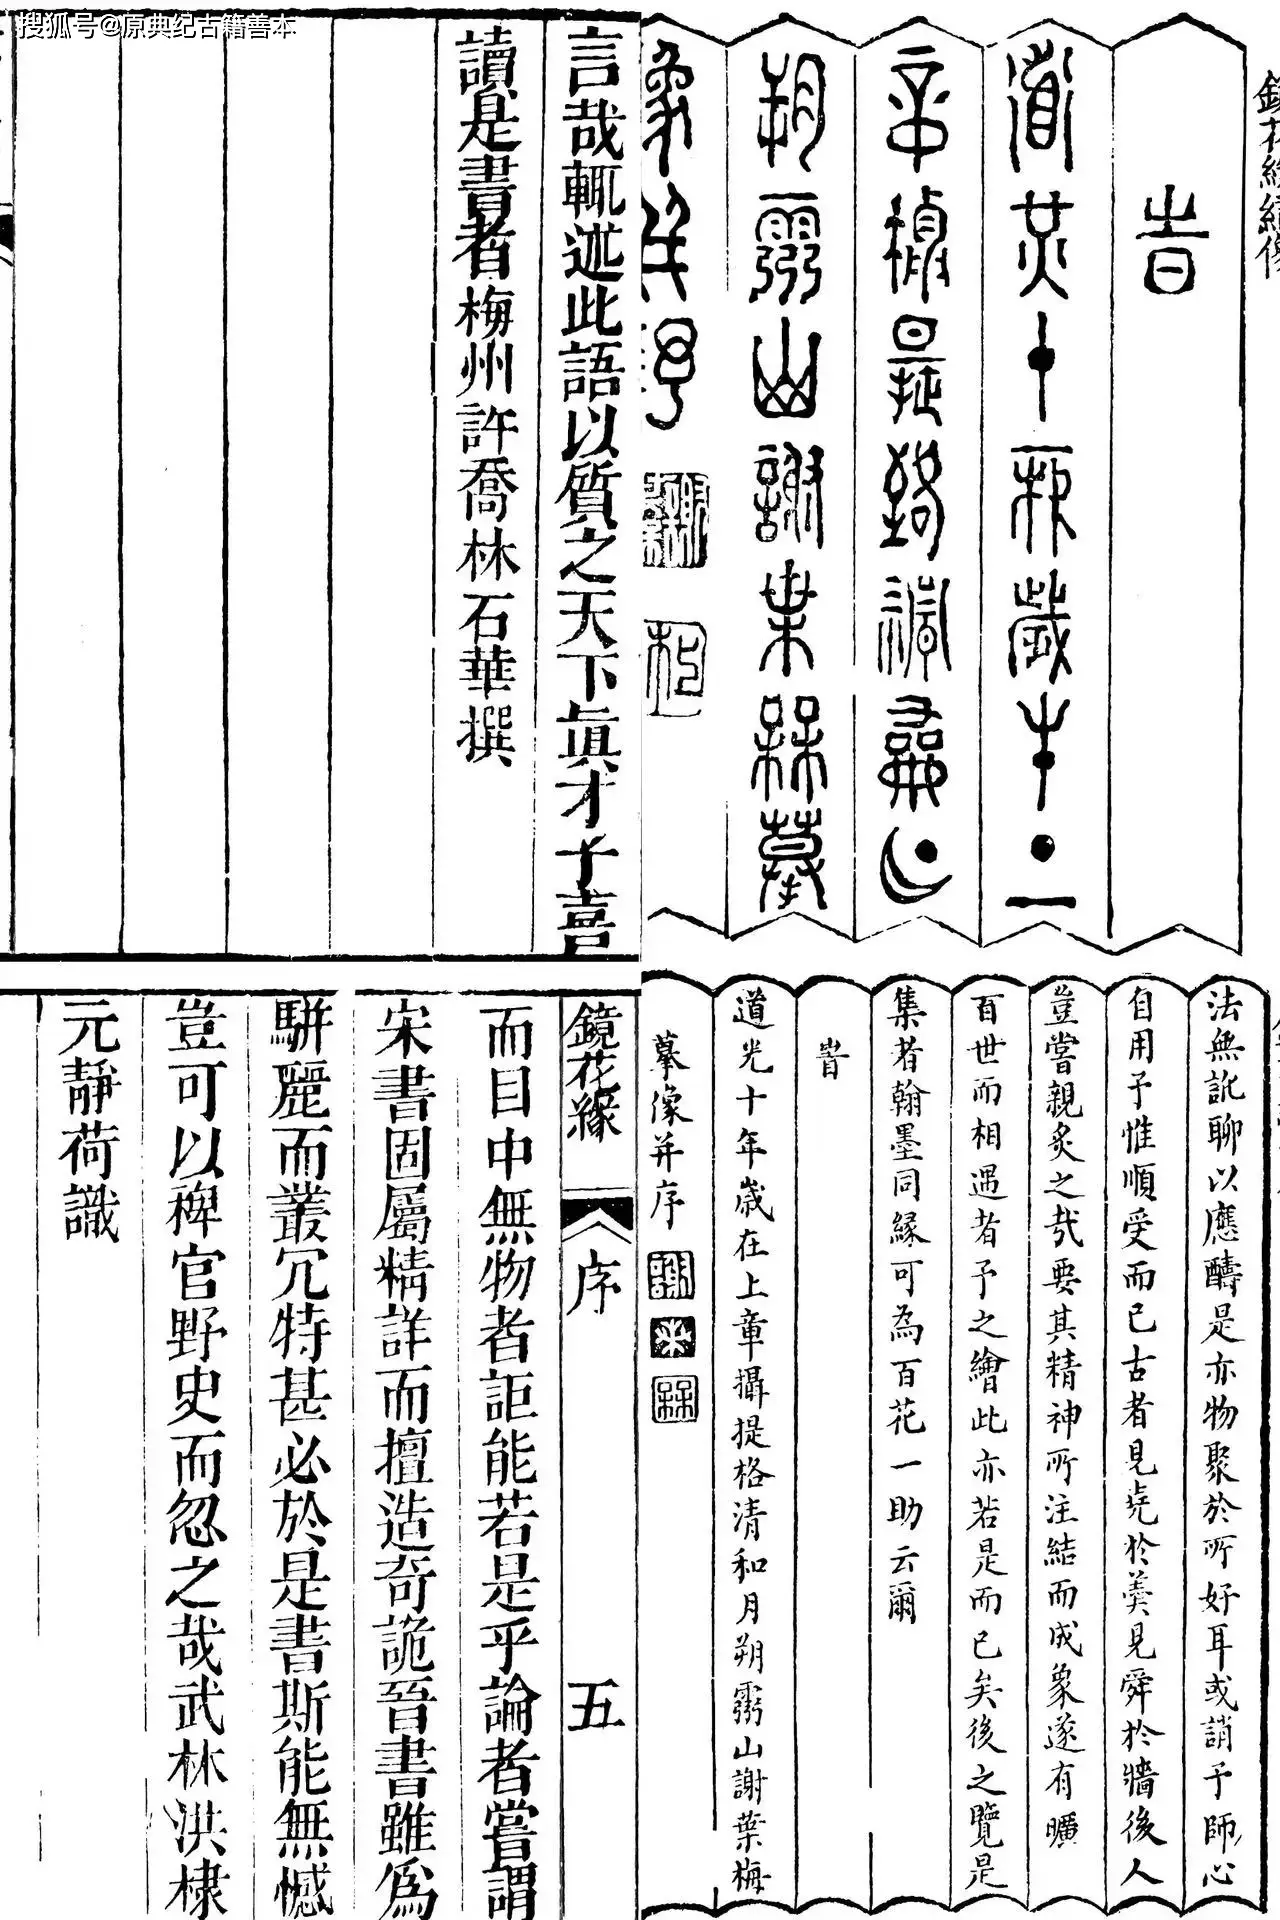 搜狐号@原典纪古籍善本
鏡花緣繡像
旹
道光十年歲在上
章攝提格清和月
朔山謝葉梅摹
像并序
言哉輒述此語以質之天下眞才子喜
讀是書者梅州許喬林石華撰
法無訛聊以應醻是亦物聚於所好耳或誚予師心
自用予惟順受而已古者見堯於羹見舜於牆後人
豈嘗親炙之哉要其精神所注結而成象遂有曠
百世而相遇者予之繪此亦若是而已矣後之覽是
集者翰墨同緣可為百花一助云爾
旹
道光十年歲在上章攝提格清和月朔山謝葉梅
摹像并序
鏡花緣 序 五
而目中無物者詎能若是乎論者嘗謂
宋書固屬精詳而擅造奇詭晉書雖爲
駢麗而叢冗特甚必於是書斯能無憾
豈可以稗官野史而忽之哉武林洪棣
元靜荷識